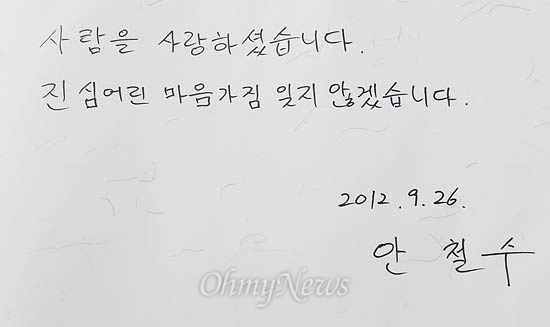 사람을 사랑하셨습니다.
진심어린 마음가짐 잊지 않겠습니다.
2012. 9. 26.
안 철 수
OhmyNews